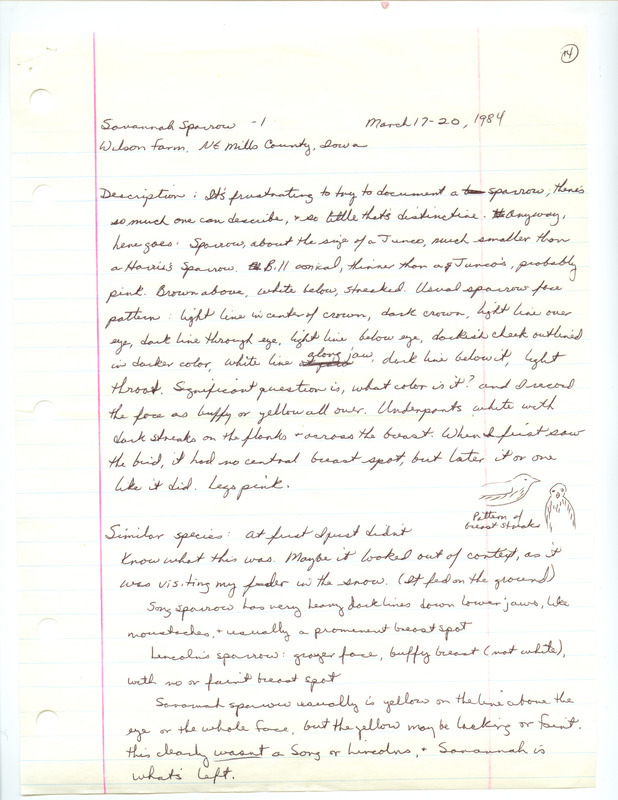 14
Savannah Sparrow -1 March 17-20, 1984
Wilson Farm, NE Mills County, Iowa
Description: It's frustrating to try to document a sparrow, there's
so much one can describe, + so little that's distinctive. Anyway,
here goes. Sparrow, about the size of a Junco, much smaller than
a Harris's Sparrow. Bill conical, thinner than a Junco's, probably
pink. Brown above, white below, streaked. Usual sparrow face
pattern: light line in center of crown, dark crown, light line over
eye, dark line through eye, light line below eye, darkish cheek outlined
in darker color, white line along jaw, dark line below it, light
throat. Significant question is, what color is it? and I record
the face as buffy or yellow all over. Underparts white with
dark streaks on the flanks + across the breast. When I first saw
the bird, it had no central breast spot, but later it or one
like it did. Legs pink.
Pattern of
breast streaks
Similar species: At first I just didn't
know what this was. Maybe it looked out of context, as it
was visiting my feeder in the snow. (It fed on the ground)
Song sparrow has very heavy dark lines down lower jaws, like
moustaches, + usually a prominent breast spot
Lincoln's sparrow: grayer face, buffy breast (not white),
with no or faint breast spot
Savannah sparrow usually is yellow on the line above the
eye or the whole face, but the yellow may be lacking or faint.
This clearly wasn't a Song or Lincolns, + Savannah is
what's left.